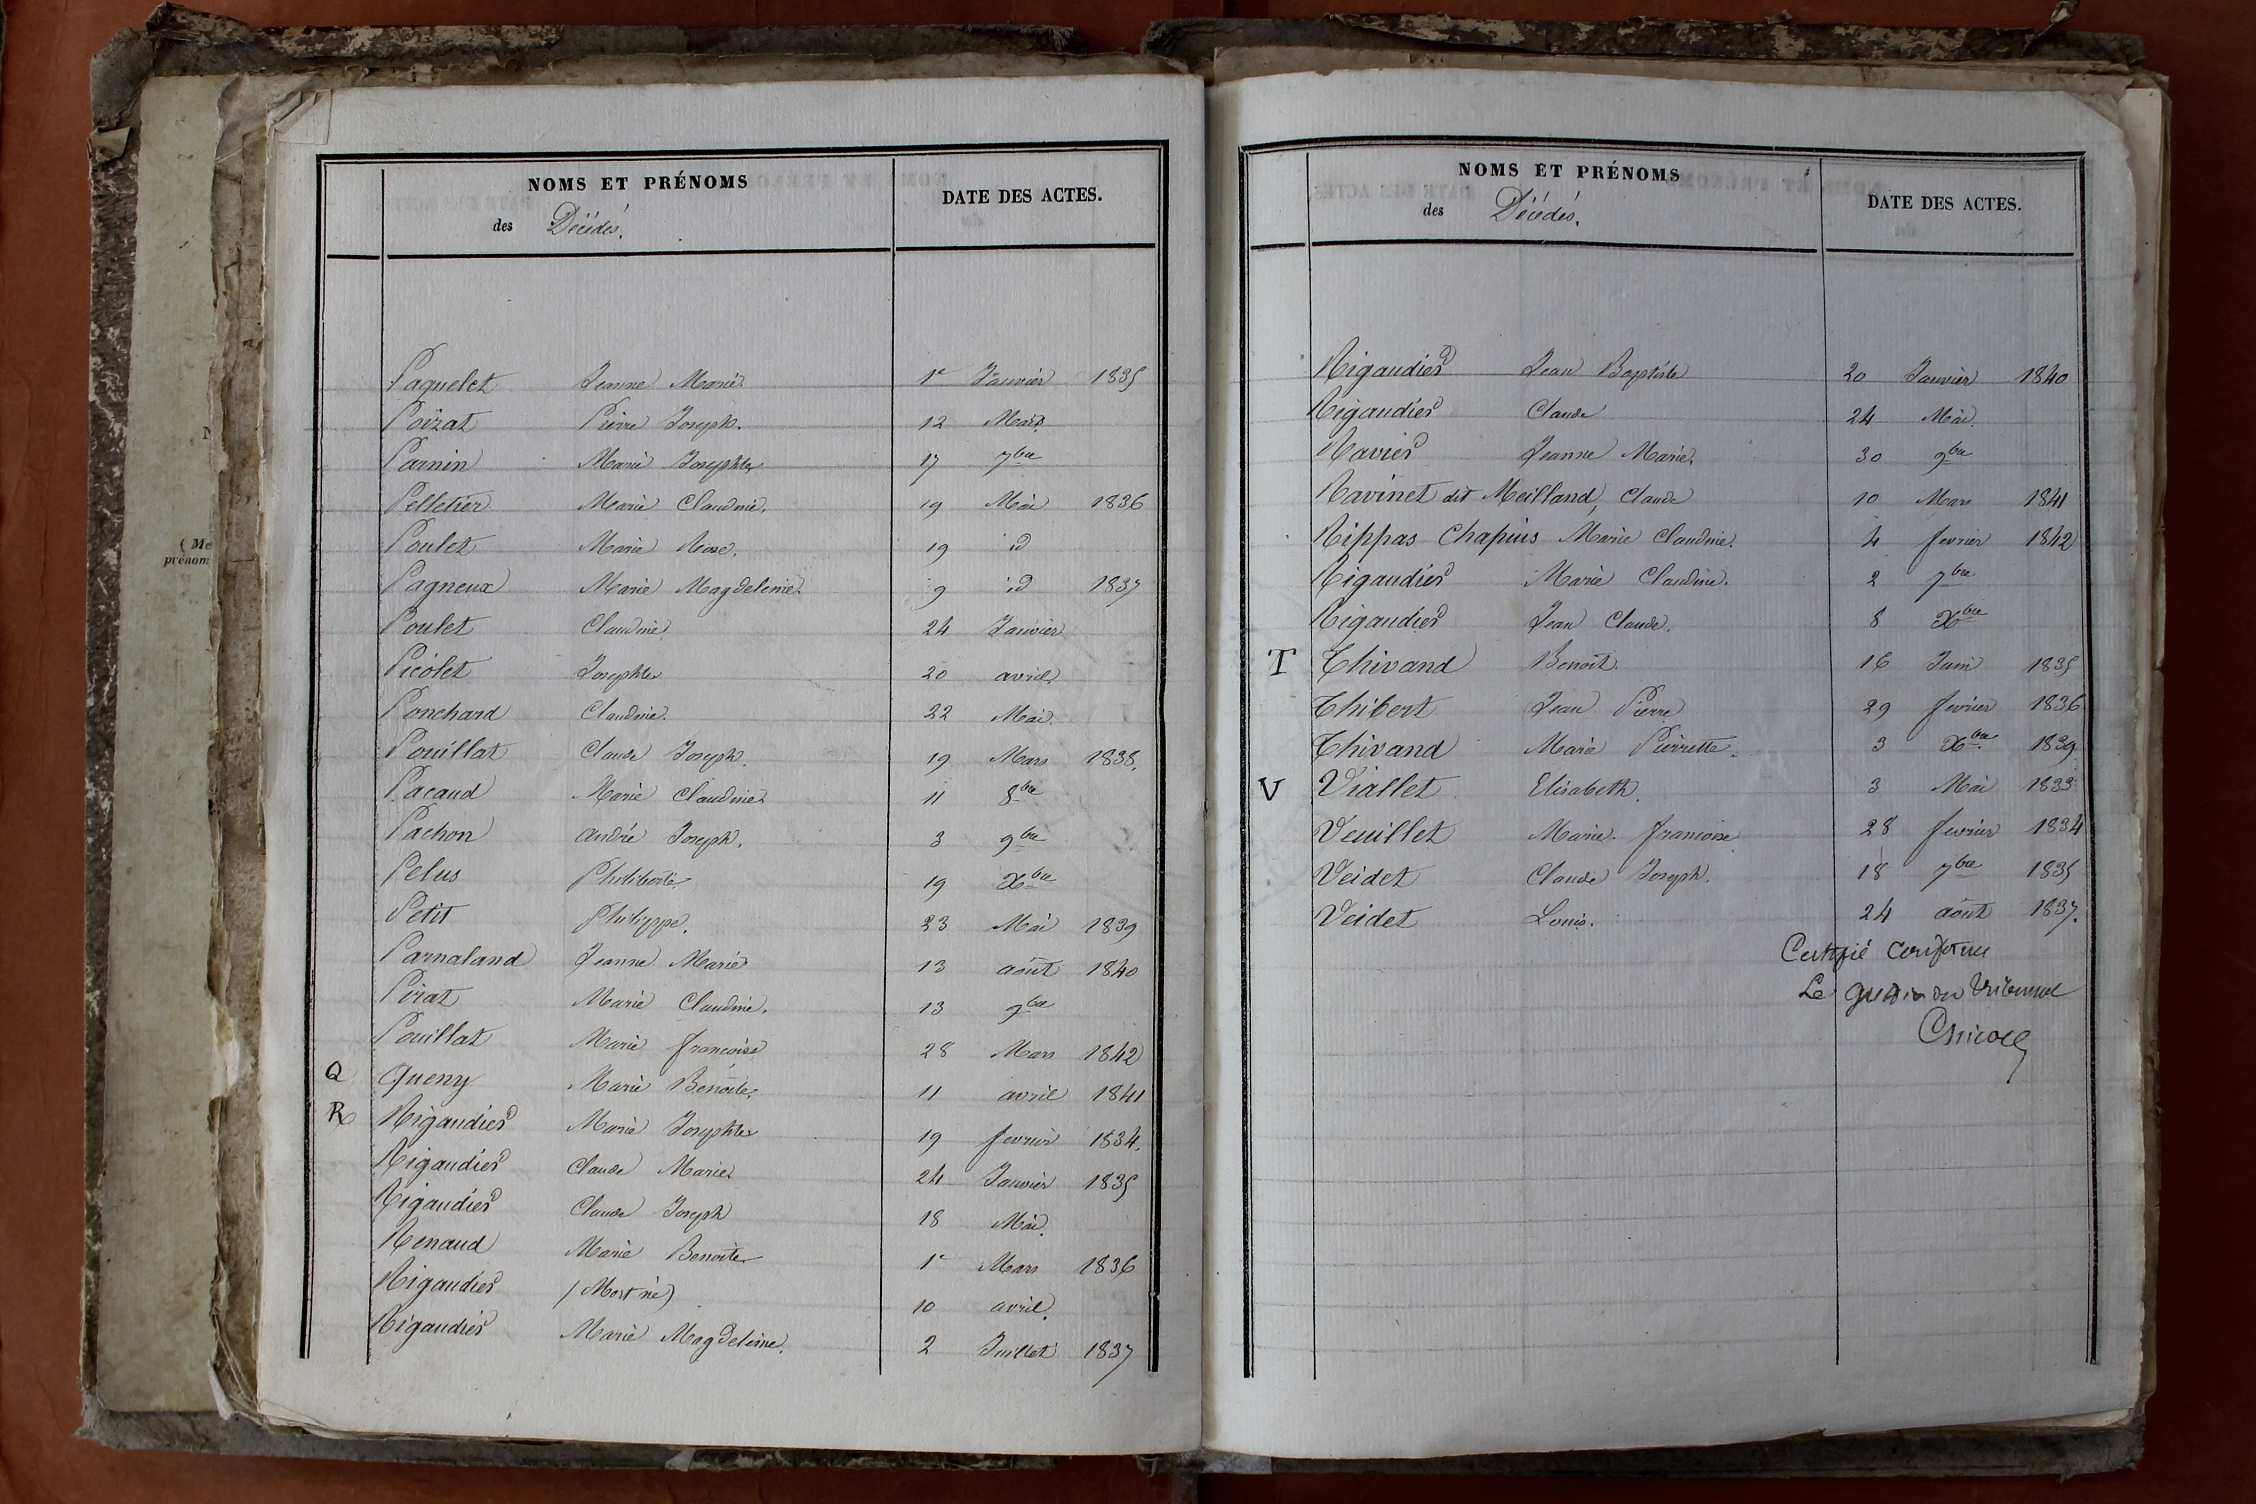 (Me
prénom
NOMS ET PRÉNOMS
des Décédés.
DATE DES ACTES.
Paquelet Jeanne Marie 1er Janvier 1835
Poizat Pierre Joseph. 12 Mars
Parnin Marie Josephte 17 7bre
Pelletier Marie Claudine. 19 Mai 1836
Poulet Marie Rose. 19 id
Pagneux Marie Magdeleine. 9 id 1837
Poulet Claudine 24 Janvier
Picolet Josephte 20 avril
Ponchard Claudine. 22 Mai
Pouillat Claude Joseph. 19 Mars 1838.
Pacaud Marie Claudine 11 8bre
Pachon andré Joseph. 3 9bre
Pelus Philiberte 19 Xbre
Petit Philippe. 23 Mai 1839
Parnaland Jeanne Marie 13 août 1840
Pirat Marie Claudine. 13 9bre
Pouillat Marie françoise 28 Mars 1842
Q Queny Marie Benoite. 11 avril 1841
R Rigaudier Marie Josephte 19 fevrier 1834.
Rigaudier Claude Marie 24 Janvier 1835
Rigaudier Claude Joseph 18 Mai.
Renaud Marie Benoite 1er Mars 1836
Rigaudier (Mort né) 10 avril.
Rigaudier Marie Magdeleine. 2 Juillet 1837
NOMS ET PRÉNOMS
des Décédés.
DATE DES ACTES.
Rigaudier Jean Baptiste 20 Janvier 1840
Rigaudier Claude 24 Mai
Ravier Jeanne Marie. 30 9bre
Ravinet dit Meilland, Claude 10 Mars 1841
Rippas Chapuis Marie Claudine. 4 fevrier 1842
Rigaudier Marie Claudine. 2 7bre
Rigaudier Jean Claude. 8 Xbre
T Thivand Benoît 16 Juin 1835
Thibert Jean Pierre 29 fevrier 1836
Thivand Marie Pierrette. 3 Xbre 1839
V Viallet Elisabeth. 3 Mai 1833
Veuillet Marie francoise 28 fevrier 1834
Veidet Claude Joseph. 18 7bre 1835
Veidet Louis. 24 août 1837.
Certifié conforme
Le greffier du Tribunal